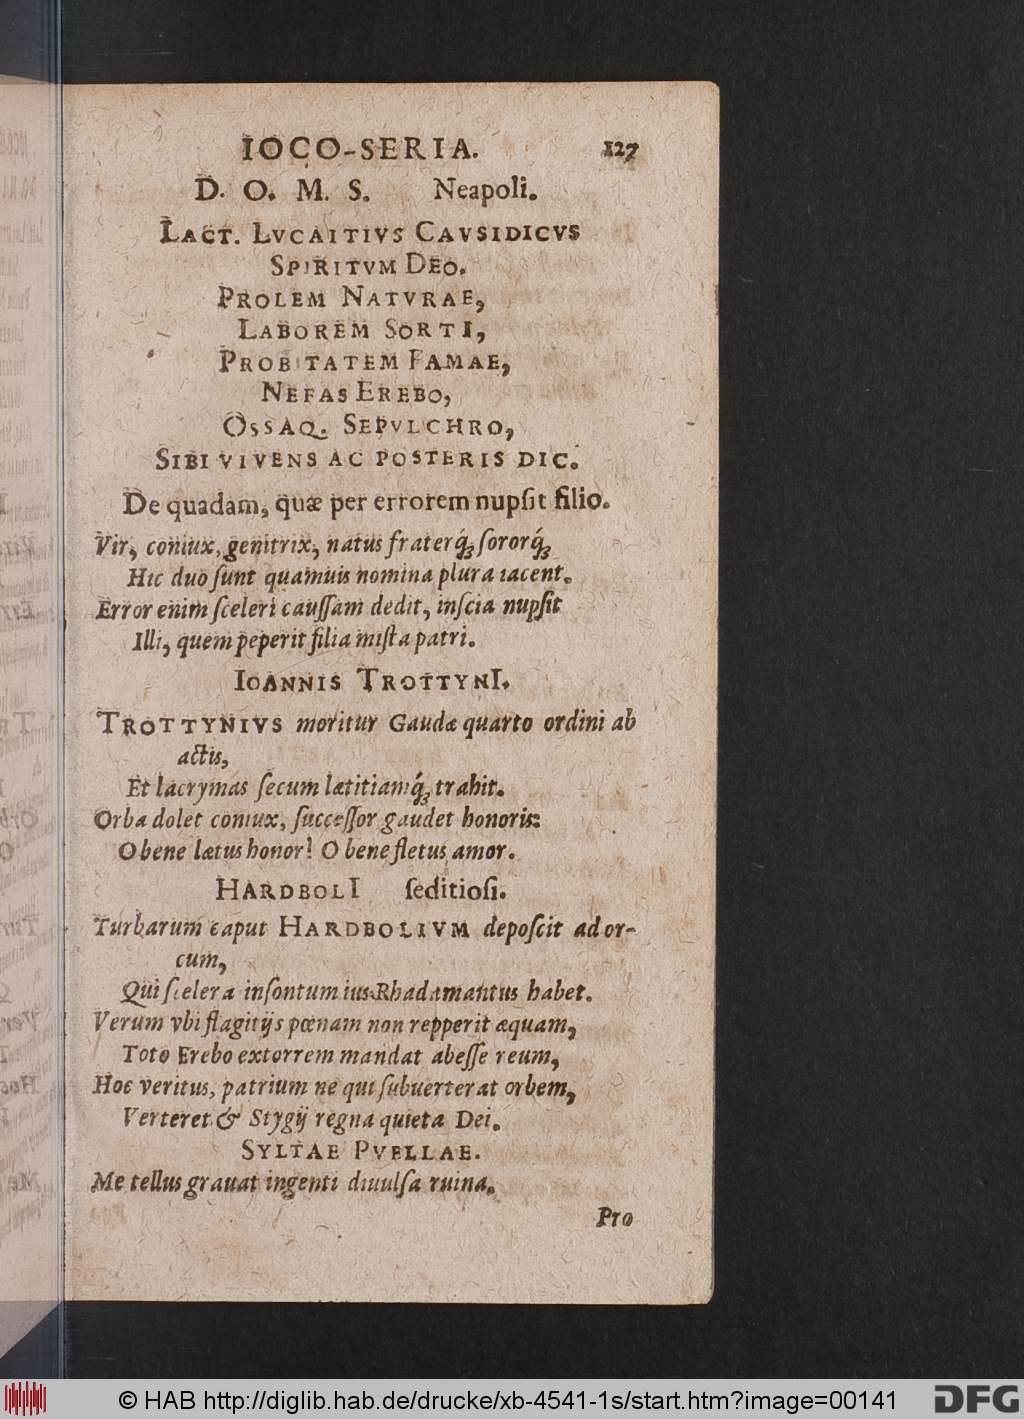 IOCO-SERIA. 127
D. O. M. S. Neapoli.
LACT. LVCAITIVS CAVSIDICVS
SPIRITVM DEO.
PROLEM NATVRAE,
LABOREM SORTI,
PROBITATEM FAMAE,
NEFAS EREBO,
OSSAQ. SEPVLCHRO,
SIBI VIVENS AC POSTERIS DIC.
De quadam, quæ per errorem nupſit filio.
Vir, coniux, genitrix, natus fraterq́ꝫ ſororq́ꝫ
Hic duo ſunt quamuis nomina plura iacent.
Error enim ſceleri cauſſam dedit, inſcia nupſit
Illi, quem peperit filia miſta patri.
IOANNIS TROTTYNI.
TROTTYNIVS moritur Gaudæ quarto ordini ab
actis,
Et lacrymas ſecum lætitiamq́ꝫ trahit.
Orba dolet coniux, ſucceſſor gaudet honoris:
O bene lætus honor! O bene fletus amor.
HARDBOLI ſeditioſi.
Turbarum caput HARDBOLIVM depoſcit ad or-
cum,
Qui ſcelera inſontum ius Rhadamantus habet.
Verum vbi flagitijs pœnam non repperit æquam,
Toto Erebo extorrem mandat abeſſe reum,
Hoc veritus, patrium ne qui ſubuerterat orbem,
Verteret & Stygij regna quieta Dei.
SYLTAE PVELLAE.
Me tellus grauat ingenti diuulſa ruina.
Pro
© HAB http://diglib.hab.de/drucke/xb-4541-1s/start.htm?image=00141
DFG